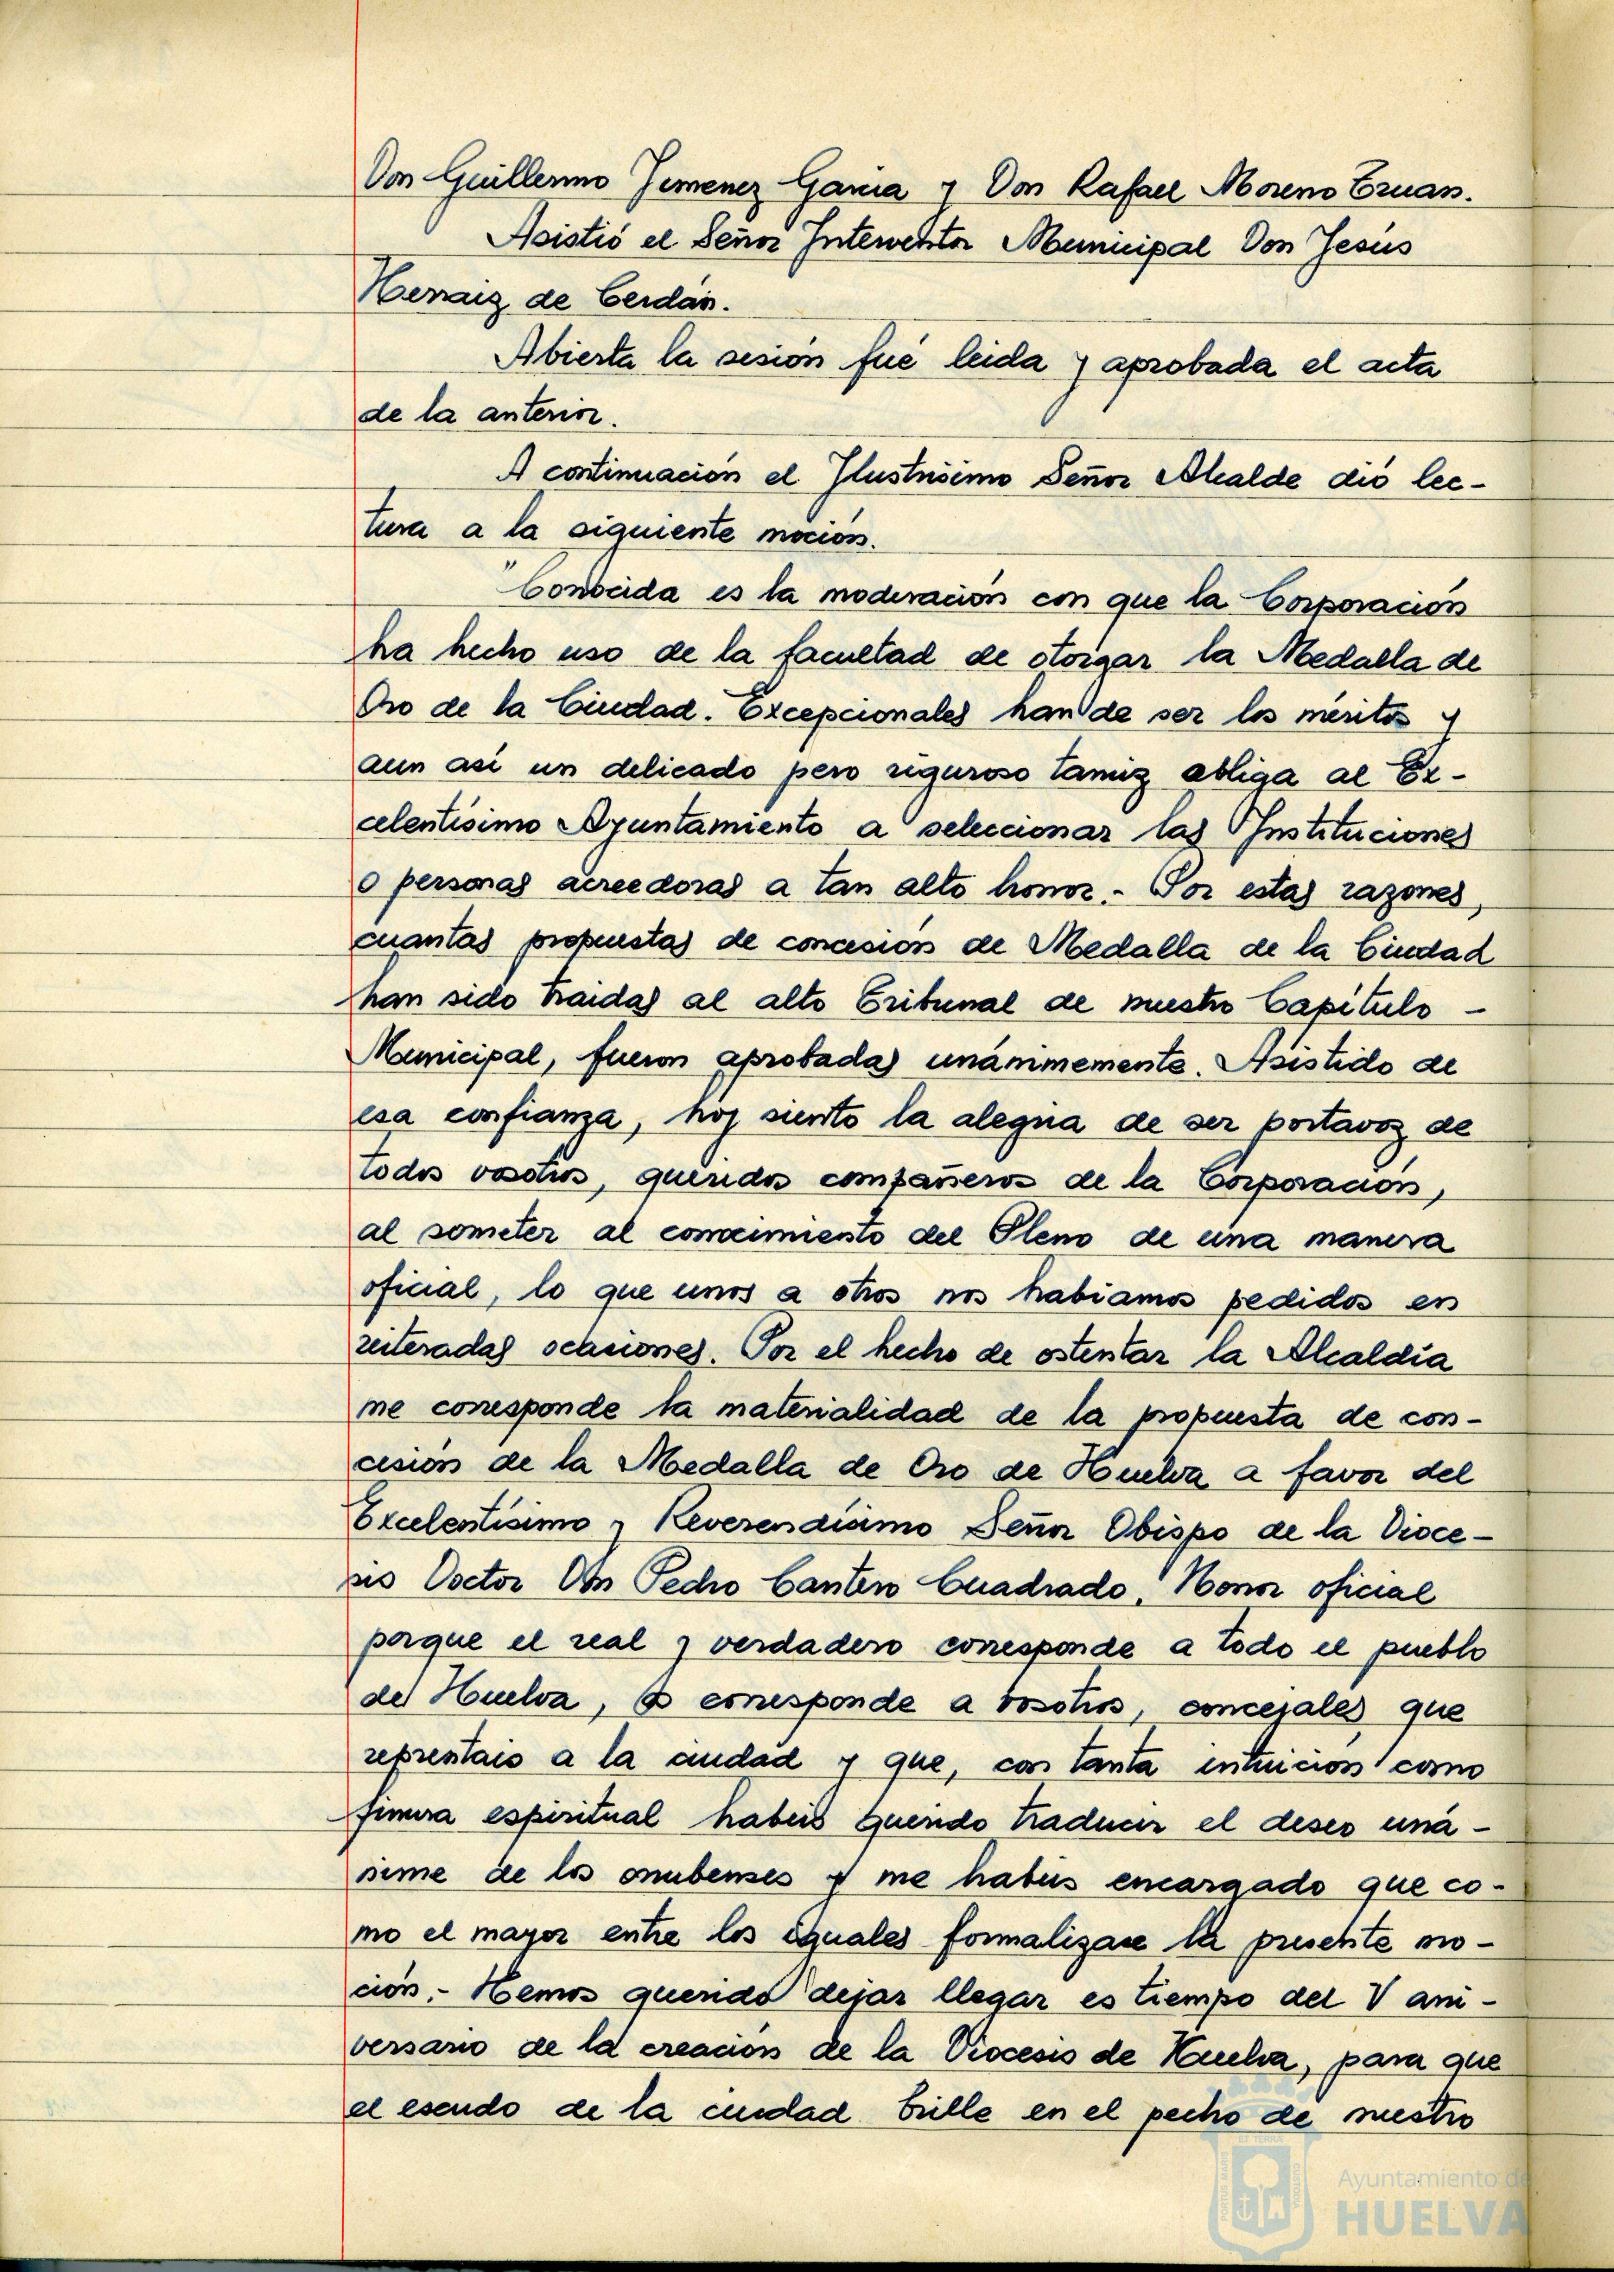 Don Guillermo Jimenez Garcia y Don Rafael Moreno Truan.
Asistió el Señor Interventor Municipal Don Jesús
Herraiz de Cerdán.
Abierta la sesión fué leida y aprobada el acta
de la anterior.
A continuación el Ilustrisimo Señor Alcalde dió lec-
tura a la siguiente moción.
"Conocida es la moderación con que la Corporación
ha hecho uso de la facultad de otorgar la Medalla de
Oro de la Ciudad. Excepcionales han de ser los méritos y
aun así un delicado pero riguroso tamiz obliga al Ex-
celentísimo Ayuntamiento a seleccionar las Instituciones
o personas acreedoras a tan alto honor.- Por estas razones,
cuantas propuestas de concesión de Medalla de la Ciudad
han sido traidas al alto Tribunal de nuestro Capítulo -
Municipal, fueron aprobadas unánimemente. Asistido de
esa confianza, hoy siento la alegria de ser portavoz de
todos vosotros, queridos compañeros de la Corporación,
al someter al conocimiento del Pleno de una manera
oficial, lo que unos a otros nos habiamos pedidos en
reiteradas ocasiones. Por el hecho de ostentar la Alcaldía
me corresponde la materialidad de la propuesta de con-
cesión de la Medalla de Oro de Huelva a favor del
Excelentísimo y Reverendísimo Señor Obispo de la Dioce-
sis Doctor Don Pedro Cantero Cuadrado. Honor oficial
porque el real y verdadero corresponde a todo el pueblo
de Huelva, os corresponde a vosotros, concejales que
reprentais a la ciudad y que, con tanta intuición como
finura espiritual habeis querido traducir el deseo uná-
nime de los onubenses y me habeis encargado que co-
mo el mayor entre los iguales formalizase la presente mo-
ción.- Hemos querido dejar llegar es tiempo del V ani-
versario de la creación de la Diocesis de Huelva, para que
el escudo de la ciudad brille en el pecho de nuestro
PORTUS MARIS ET TERRAE CUSTODIA
Ayuntamiento de
HUELVA